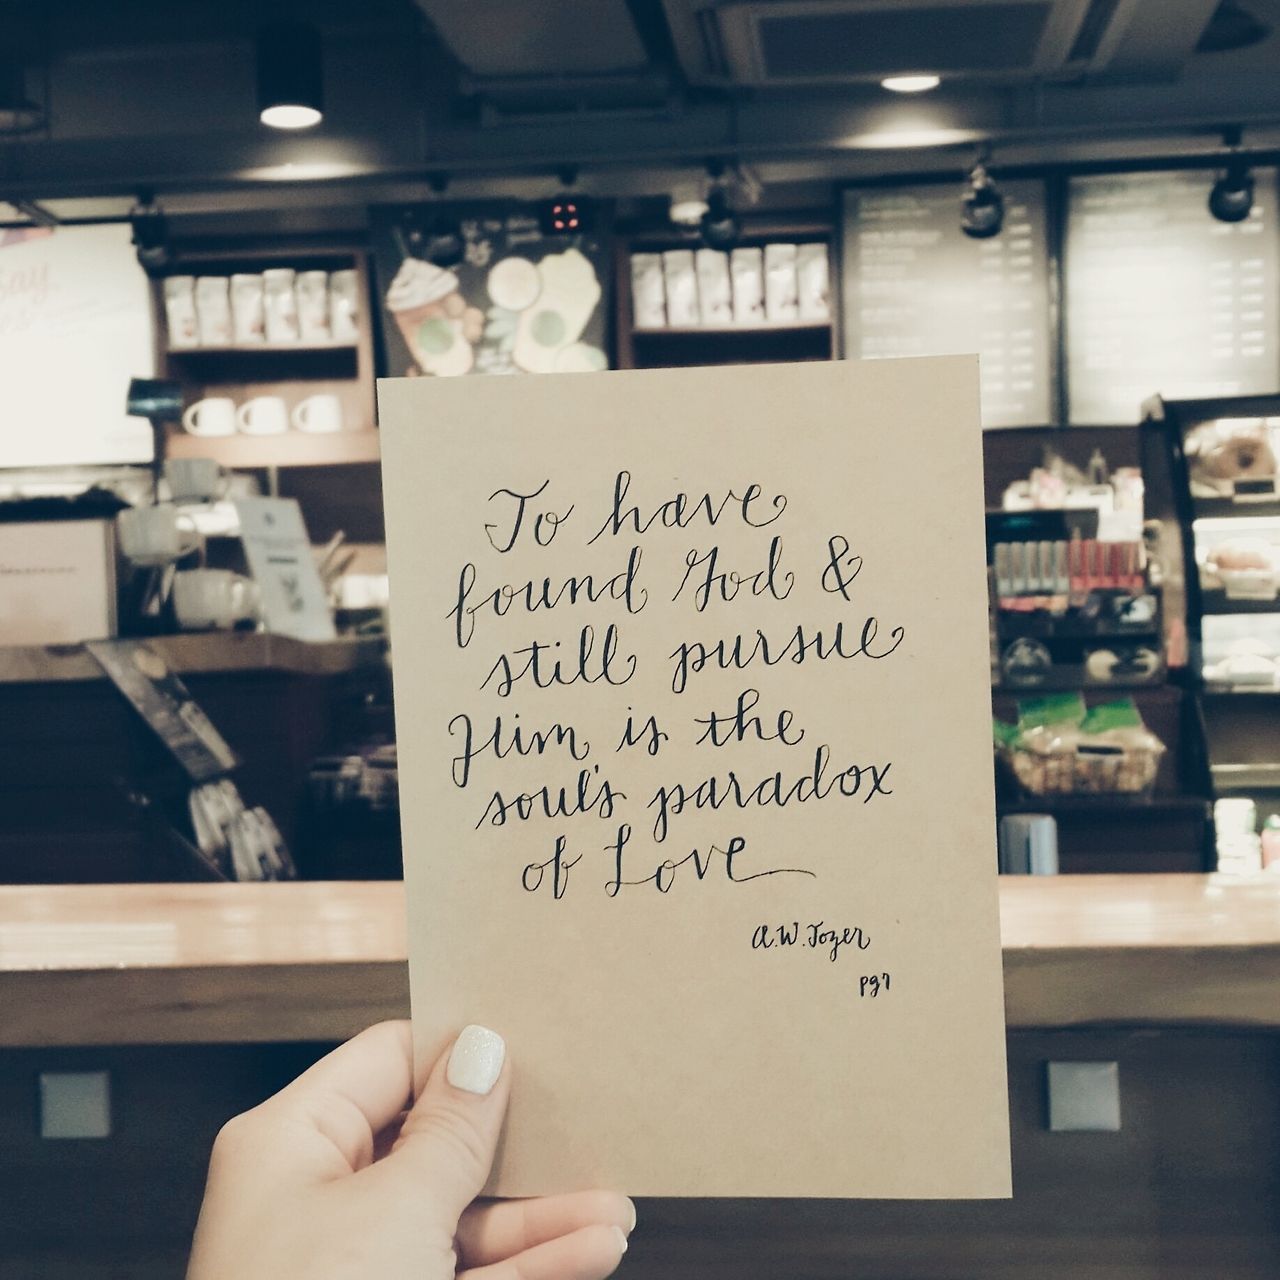 To have
found God &
still pursue
Him is the
soul's paradox
of Love
A.W. Tozer
pg7